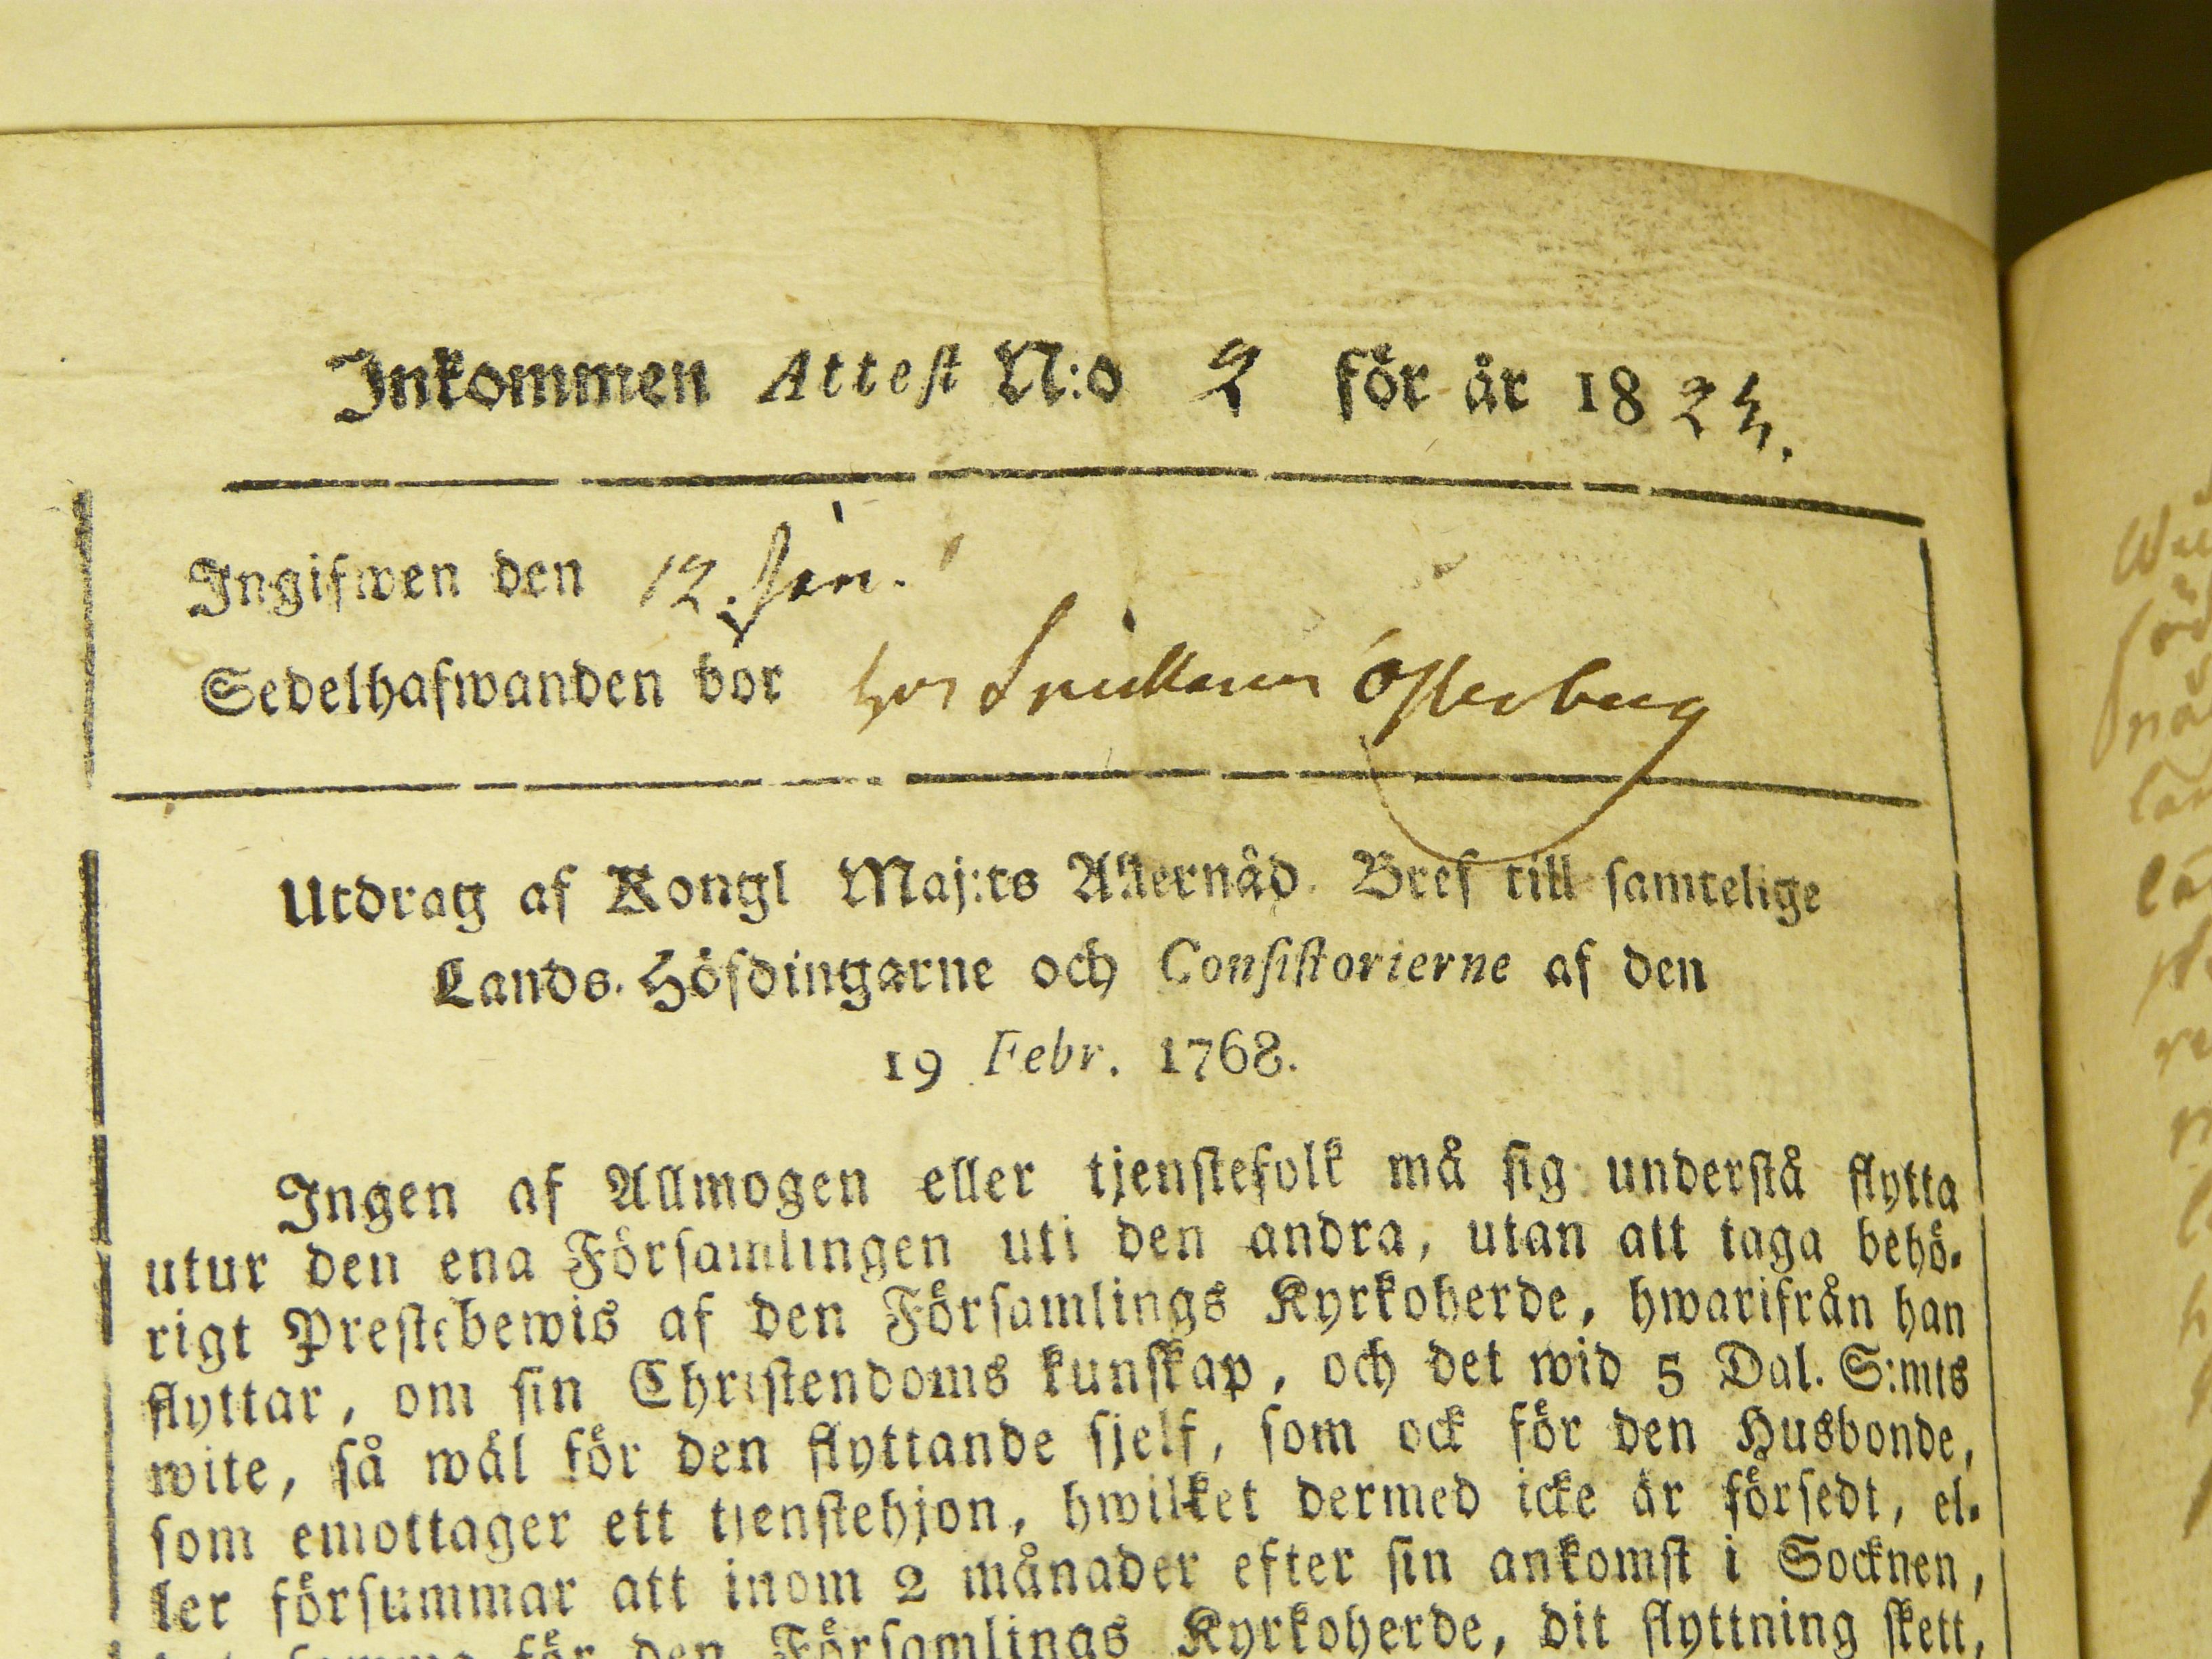 Inkommen Attest N:o 2 för år 1824.
Ingifwen den 12. Jan.
Sedelhafwanden bor hos Snickaren Österberg
Utdrag af Kongl Maj:ts Allernåd. Bref till samtelige
Lands-Höfdingarne och Consistorierne af den
19 Febr. 1768.
Ingen af Allmogen eller tjenstefolk må sig understå flytta
utur den ena Församlingen uti den andra, utan att taga behö-
rigt Prestebewis af den Församlings Kyrkoherde, hwarifrån han
flyttar, om sin Christendoms kunskap, och det wid 5 Dal. S:mts
wite, så wäl för den flyttande sjelf, som ock för den Husbonde,
som emottager ett tjenstehjon, hwilket dermed icke är försedt, el-
ler försummar att inom 2 månader efter sin ankomst i Socknen,
för den Församlings Kyrkoherde, dit flyttning skett,